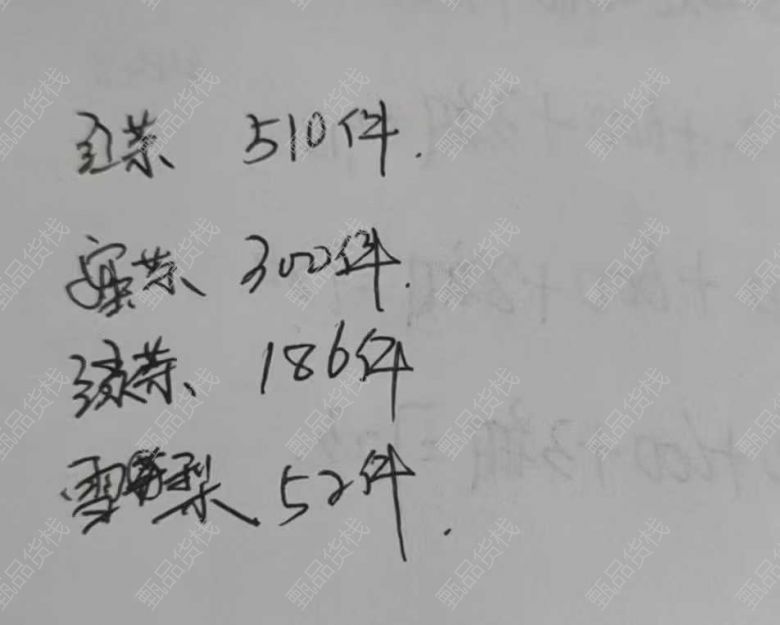 红茶 510件.
窝茶 300件.
绿茶 186件
雪梨 52件.
甄品货栈